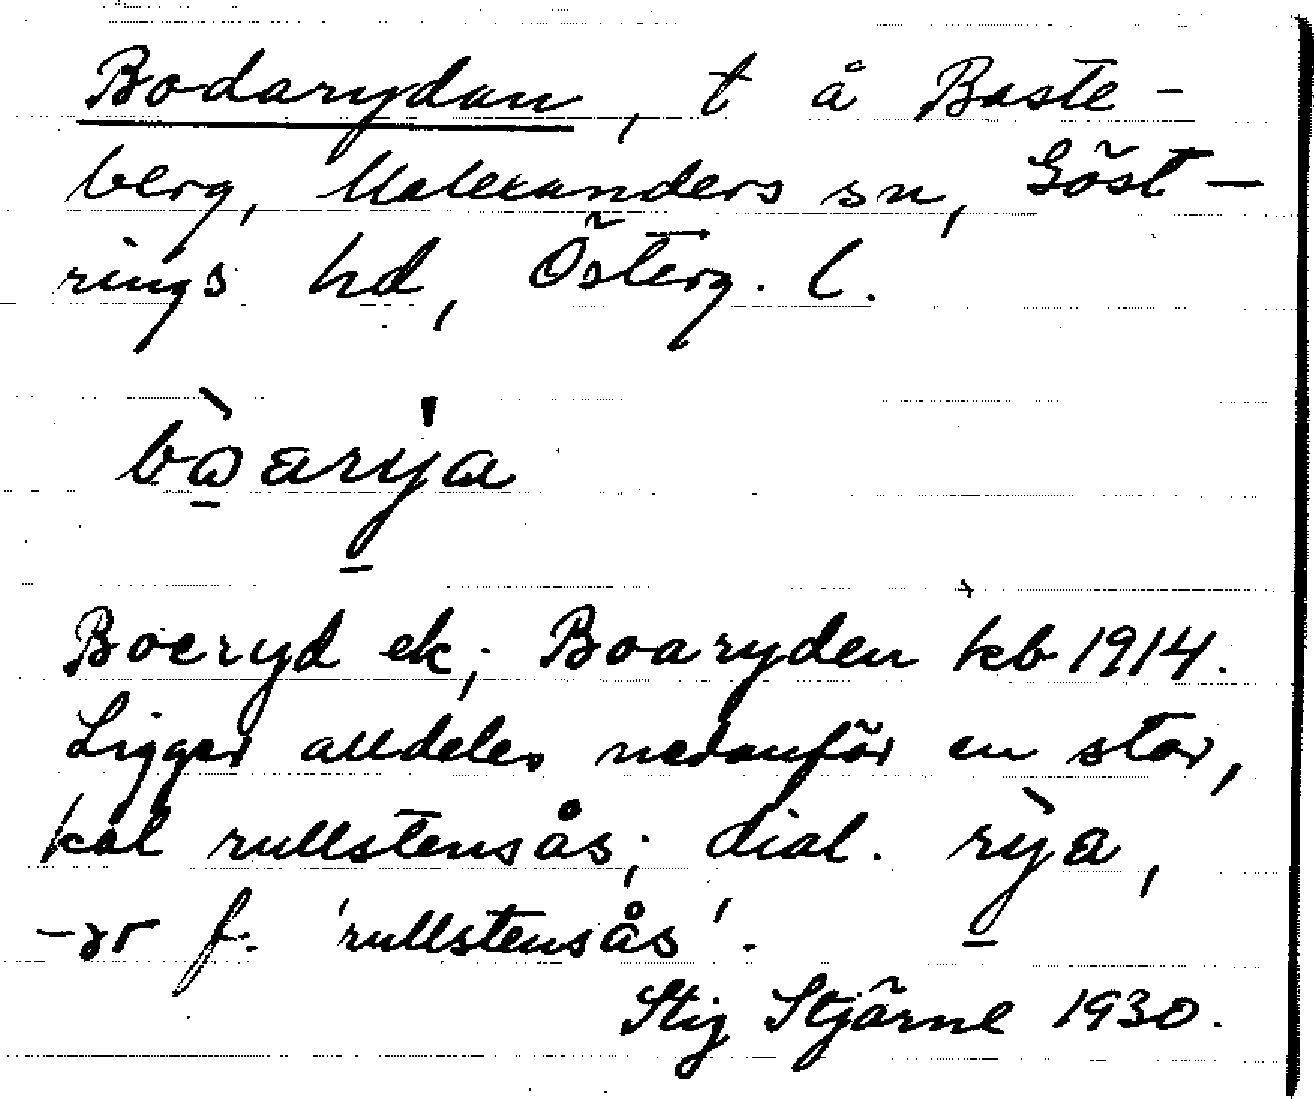 Bodarydan, t å Baste-
berg, Malexanders sn, Göst-
rings hd, Österg. l.
bo̲arya
Boeryd ek; Boaryden kb 1914.
Ligger alldeles nedanför en stor,
kal rullstensås; dial. rỳa,
-ər f. 'rullstensås'.
Stig Stjärne 1930.